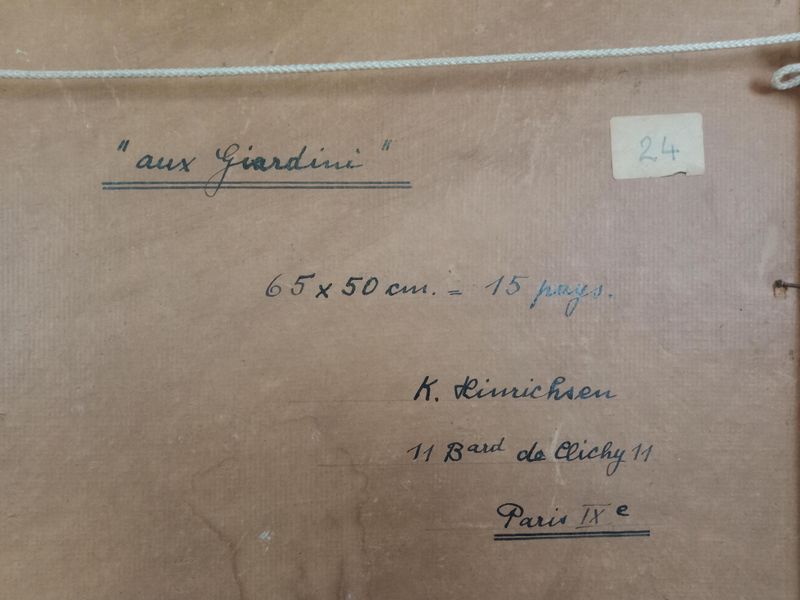 "aux Giardini"
24
65 x 50 cm. = 15 pays.
K. Hinrichsen
11 Bard de Clichy 11
Paris IXe